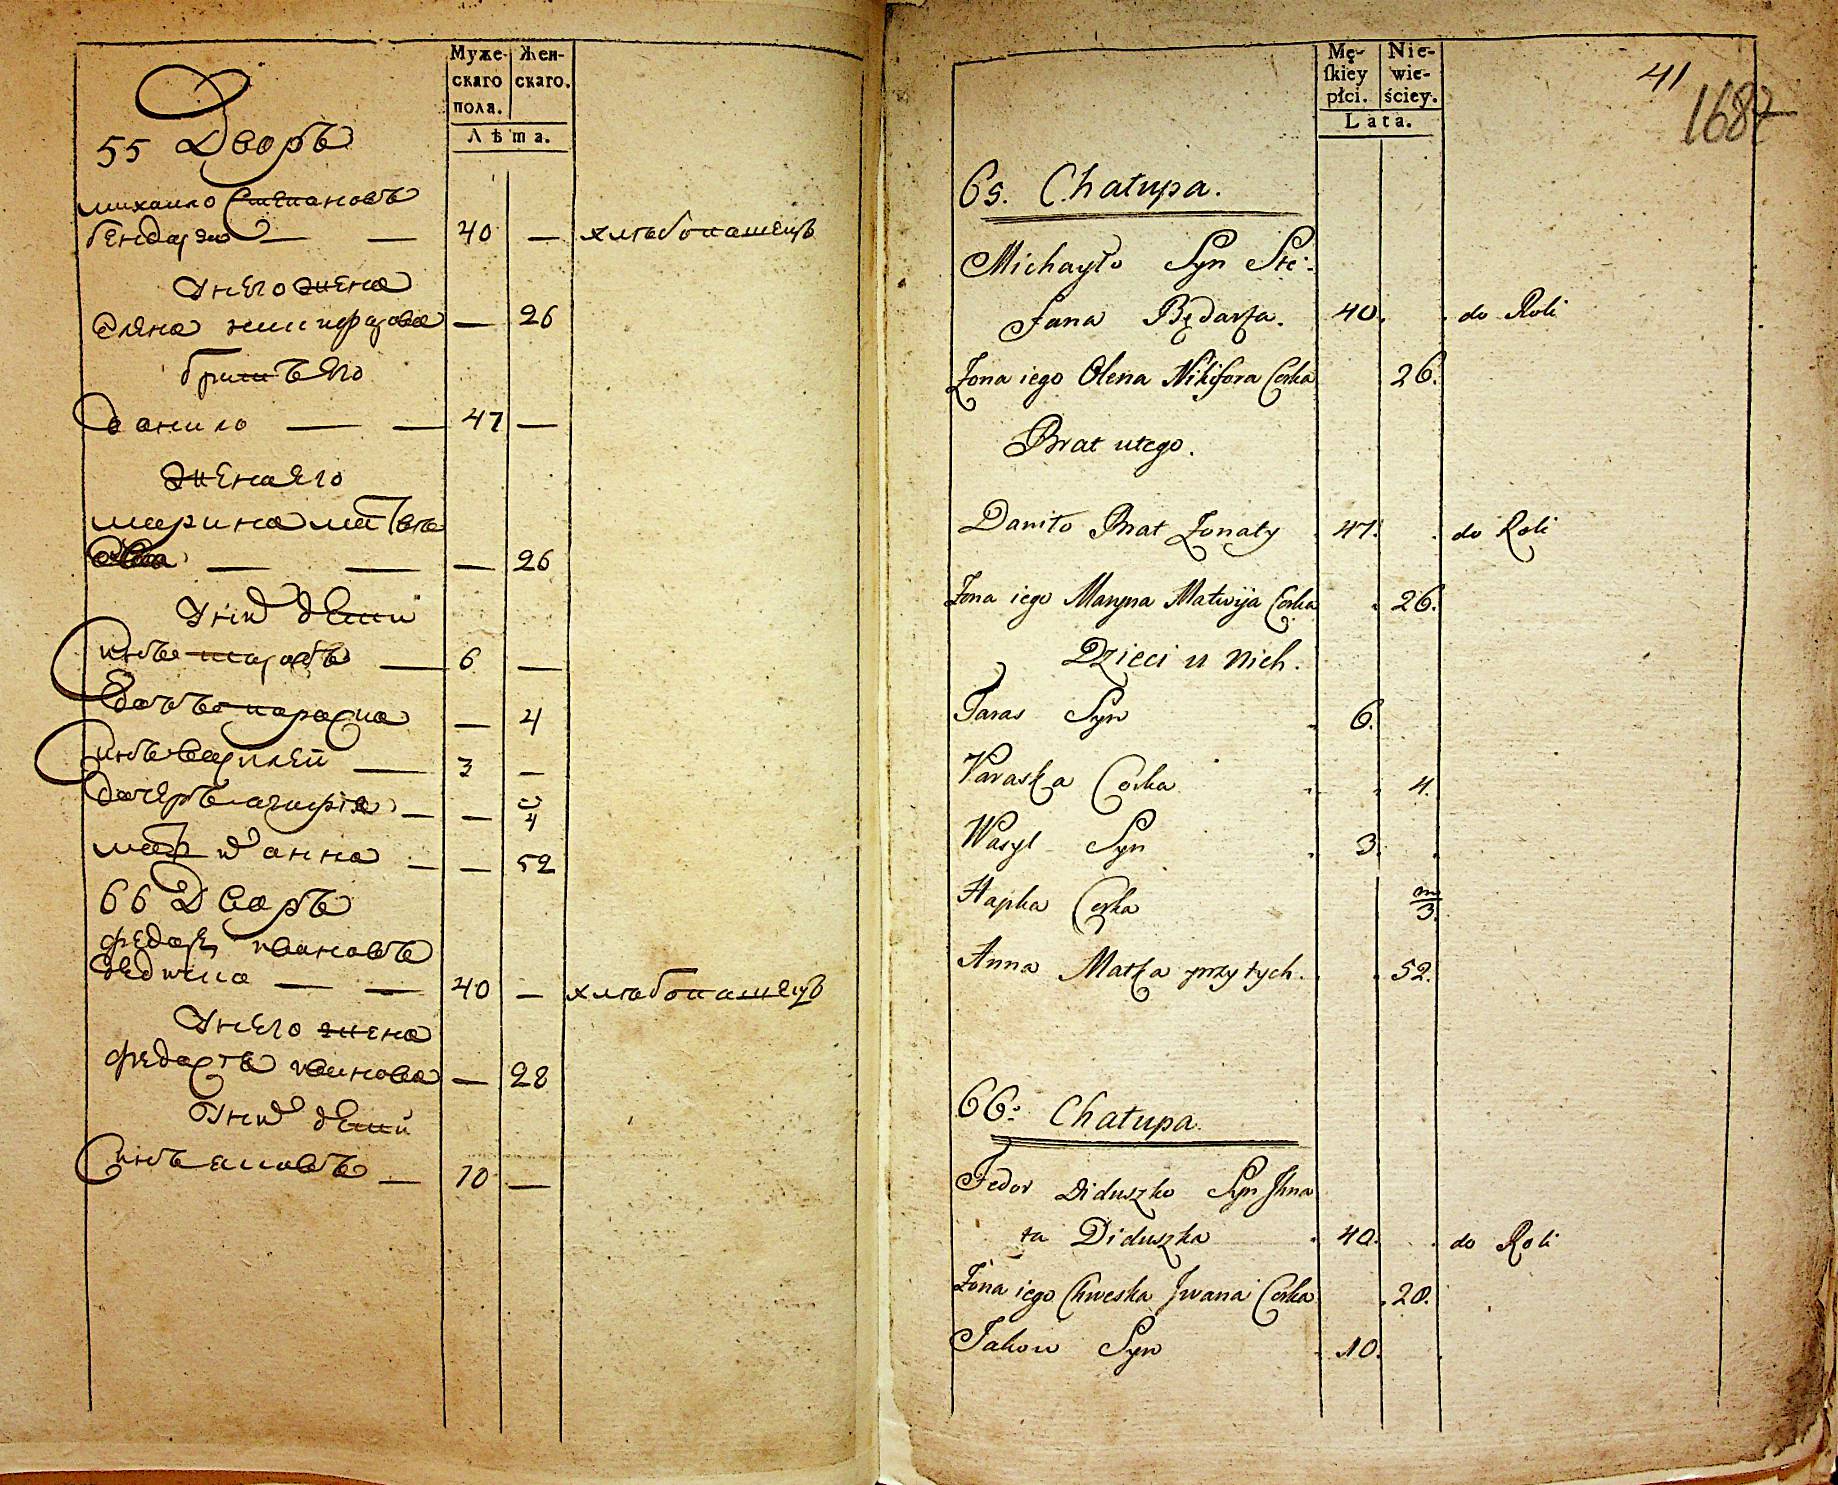 Муже-
скаго
пола.
Жен-
скаго.
Лѣта.
55 Дворъ
михаило Степановъ
бендарэ — — 40 — хлѣбопашецъ
Унего жена
Олена никифорова — 26
братъ Его
данило — — 47 —
жена Его
марина матвѣ
ова — — — 26
Уних детй
Синъ тарасъ — 6 —
дочъ параска — 4
Синъ василей — 3 —
дочеръ агафія — — 4
мат их анна — — 52
66 Дворъ
федоръ ивановъ
дедишко — — 40 — хлѣбопашецъ
Унего жена
федося ивнова — 28
Уних детй
Синъ яковъ — 10 —
Mę-
ſkiey
płci.
Nie-
wie-
ściey.
Lata.
41
1687
65. Chałupa.
Michayło Syn Ste-
fana Będarza. 40. do Roli
Żona iego Olena Nikifora Corka 26.
Brat utego.
Daniło Brat Żonaty 47. do Roli
Żona iego Maryna Matwija Corka 26.
Dzieci u nich.
Taras Syn 6.
Paraska Corka 4.
Wasyl Syn 3.
Hapka Corka m/3.
Anna Matka przy tych. 52.
66. Chałupa.
Fedor Diduszko Syn Ihna
ta Diduszka 40. do Roli
Żona iego Chweska Iwana Corka 28.
Jakow Syn 10.